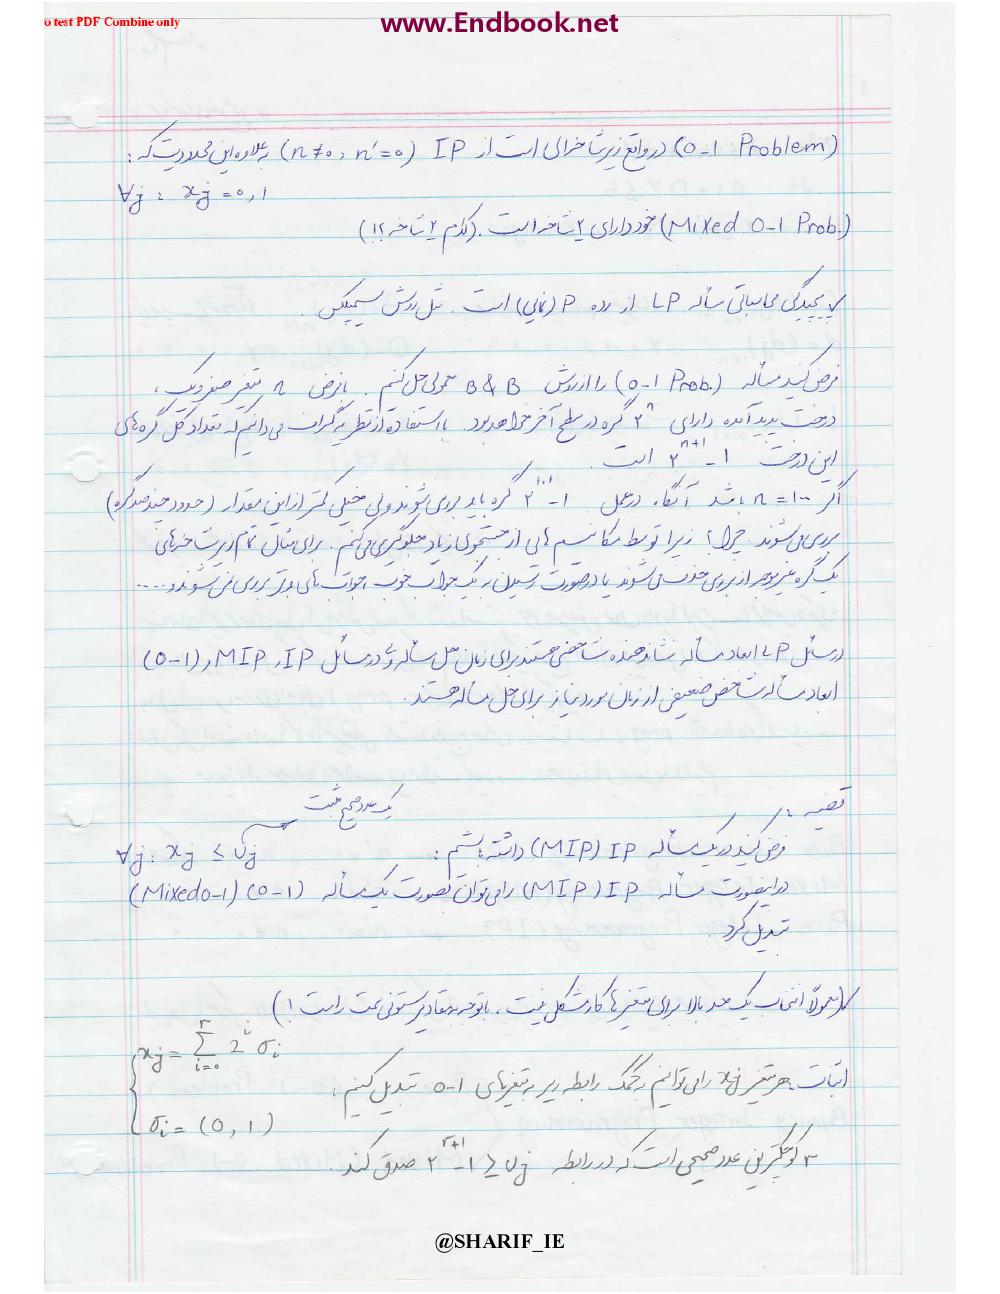 o test PDF Combine only
www.Endbook.net
(0-1 Problem) در واقع زیرشاخه‌ای است از IP (n≠0, n'=0) به علاوه این محدودیت که:
∀j : xj = 0, 1
(Mixed 0-1 Prob.) خود دارای ۲ شاخه است. (کدام ۲ شاخه؟!)
پیچیدگی محاسباتی مسأله LP از رده P (نمایی) است. مثل روش سیمپلکس.
فرض کنید مسأله (0-1 Prob.) را از روش B & B معمولی حل کنیم. با فرض n متغیر صفر و یک،
درخت پدید آمده دارای ۲^n گره در سطح آخر خواهد بود. با استفاده از نظریه گراف می‌دانیم که تعداد کل گره‌های
این درخت ۲^{n+1} - ۱ است.
اگر n = ۱۰۰ باشد آنگاه در عمل ۲^{۱۰۱} - ۱ گره باید بررسی شوند ولی خیلی کمتر از این مقدار (حدود چند صد گره)
بررسی می‌شوند. چرا؟ زیرا توسط مکانیسم هایی از جستجوی زیاد جلوگیری می‌کنیم. برای مثال تمام زیرشاخه‌های
یک گره غیر موجه از بررسی حذف می‌شوند یا در صورت رسیدن به یک جواب خوب، جواب های بدتر بررسی نمی‌شوند و ....
در مسائل LP ابعاد مسأله نشان‌دهنده شاخصی هستند برای زمان حل مسأله ولی در مسائل IP, MIP, (0-1)
ابعاد مسأله شاخص ضعیفی از زمان مورد نیاز برای حل مسأله هستند.
قضیه:
یک عدد صحیح مثبت
فرض کنید در یک مسأله IP (MIP) داشته باشیم: ∀j: xj ≤ Uj
در اینصورت مسأله IP (MIP) را می‌توان بصورت یک مسأله (0-1) (Mixed 0-1)
تبدیل کرد.
(معمولاً انتخاب یک حد بالا برای متغیرها کار مشکلی نیست. با توجه به مقادیر ستونی سمت راست!)
xj = Σ_{i=0}^{r} 2^i σi
اثبات: هر متغیر xj را می‌توانیم به کمک رابطه زیر به متغیرهای 0-1 تبدیل کنیم:
σi = (0, 1)
r کوچکترین عدد صحیحی است که در رابطه ۲^{r+1} - ۱ ≥ Uj صدق کند.
@SHARIF_IE